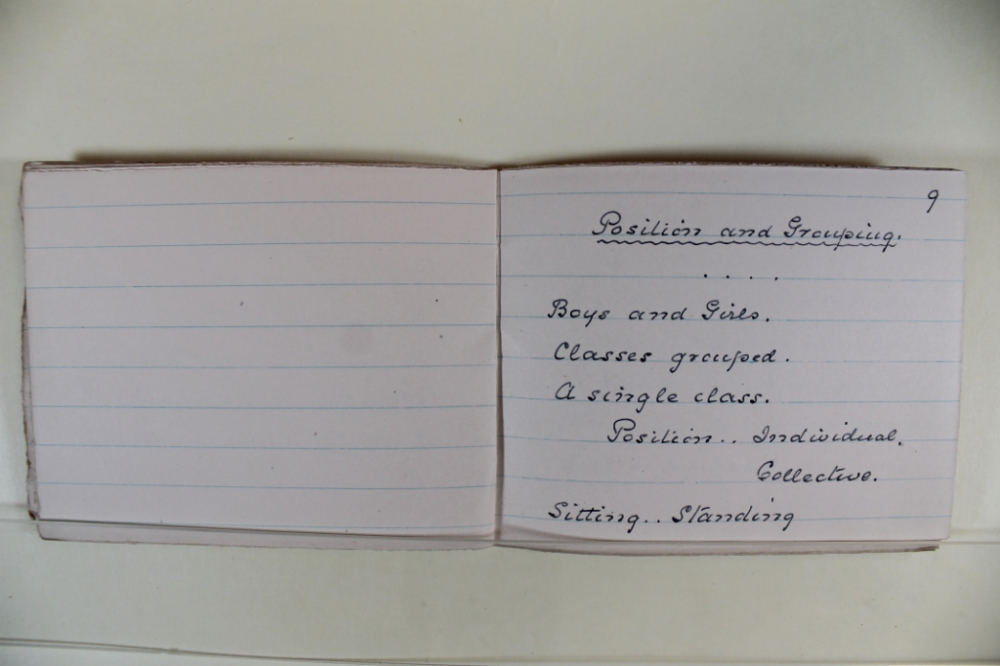 9
Position and Grouping.
. . . .
Boys and Girls.
Classes grouped.
A single class.
Position.. Individual.
Collective.
Sitting.. Standing